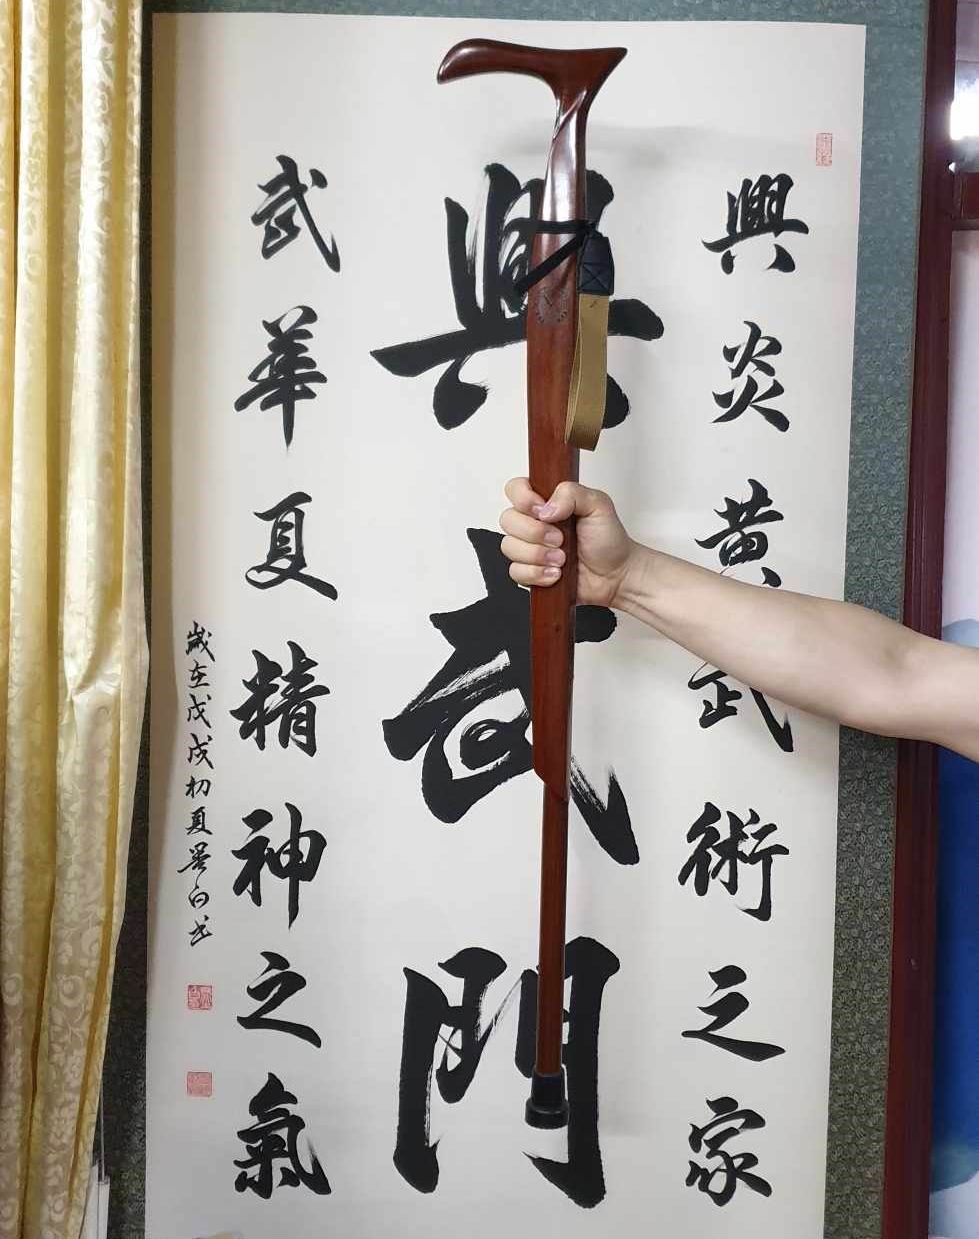 興炎黄武術之家
興武門
武華夏精神之氣
歲在戊戌初夏墨白书